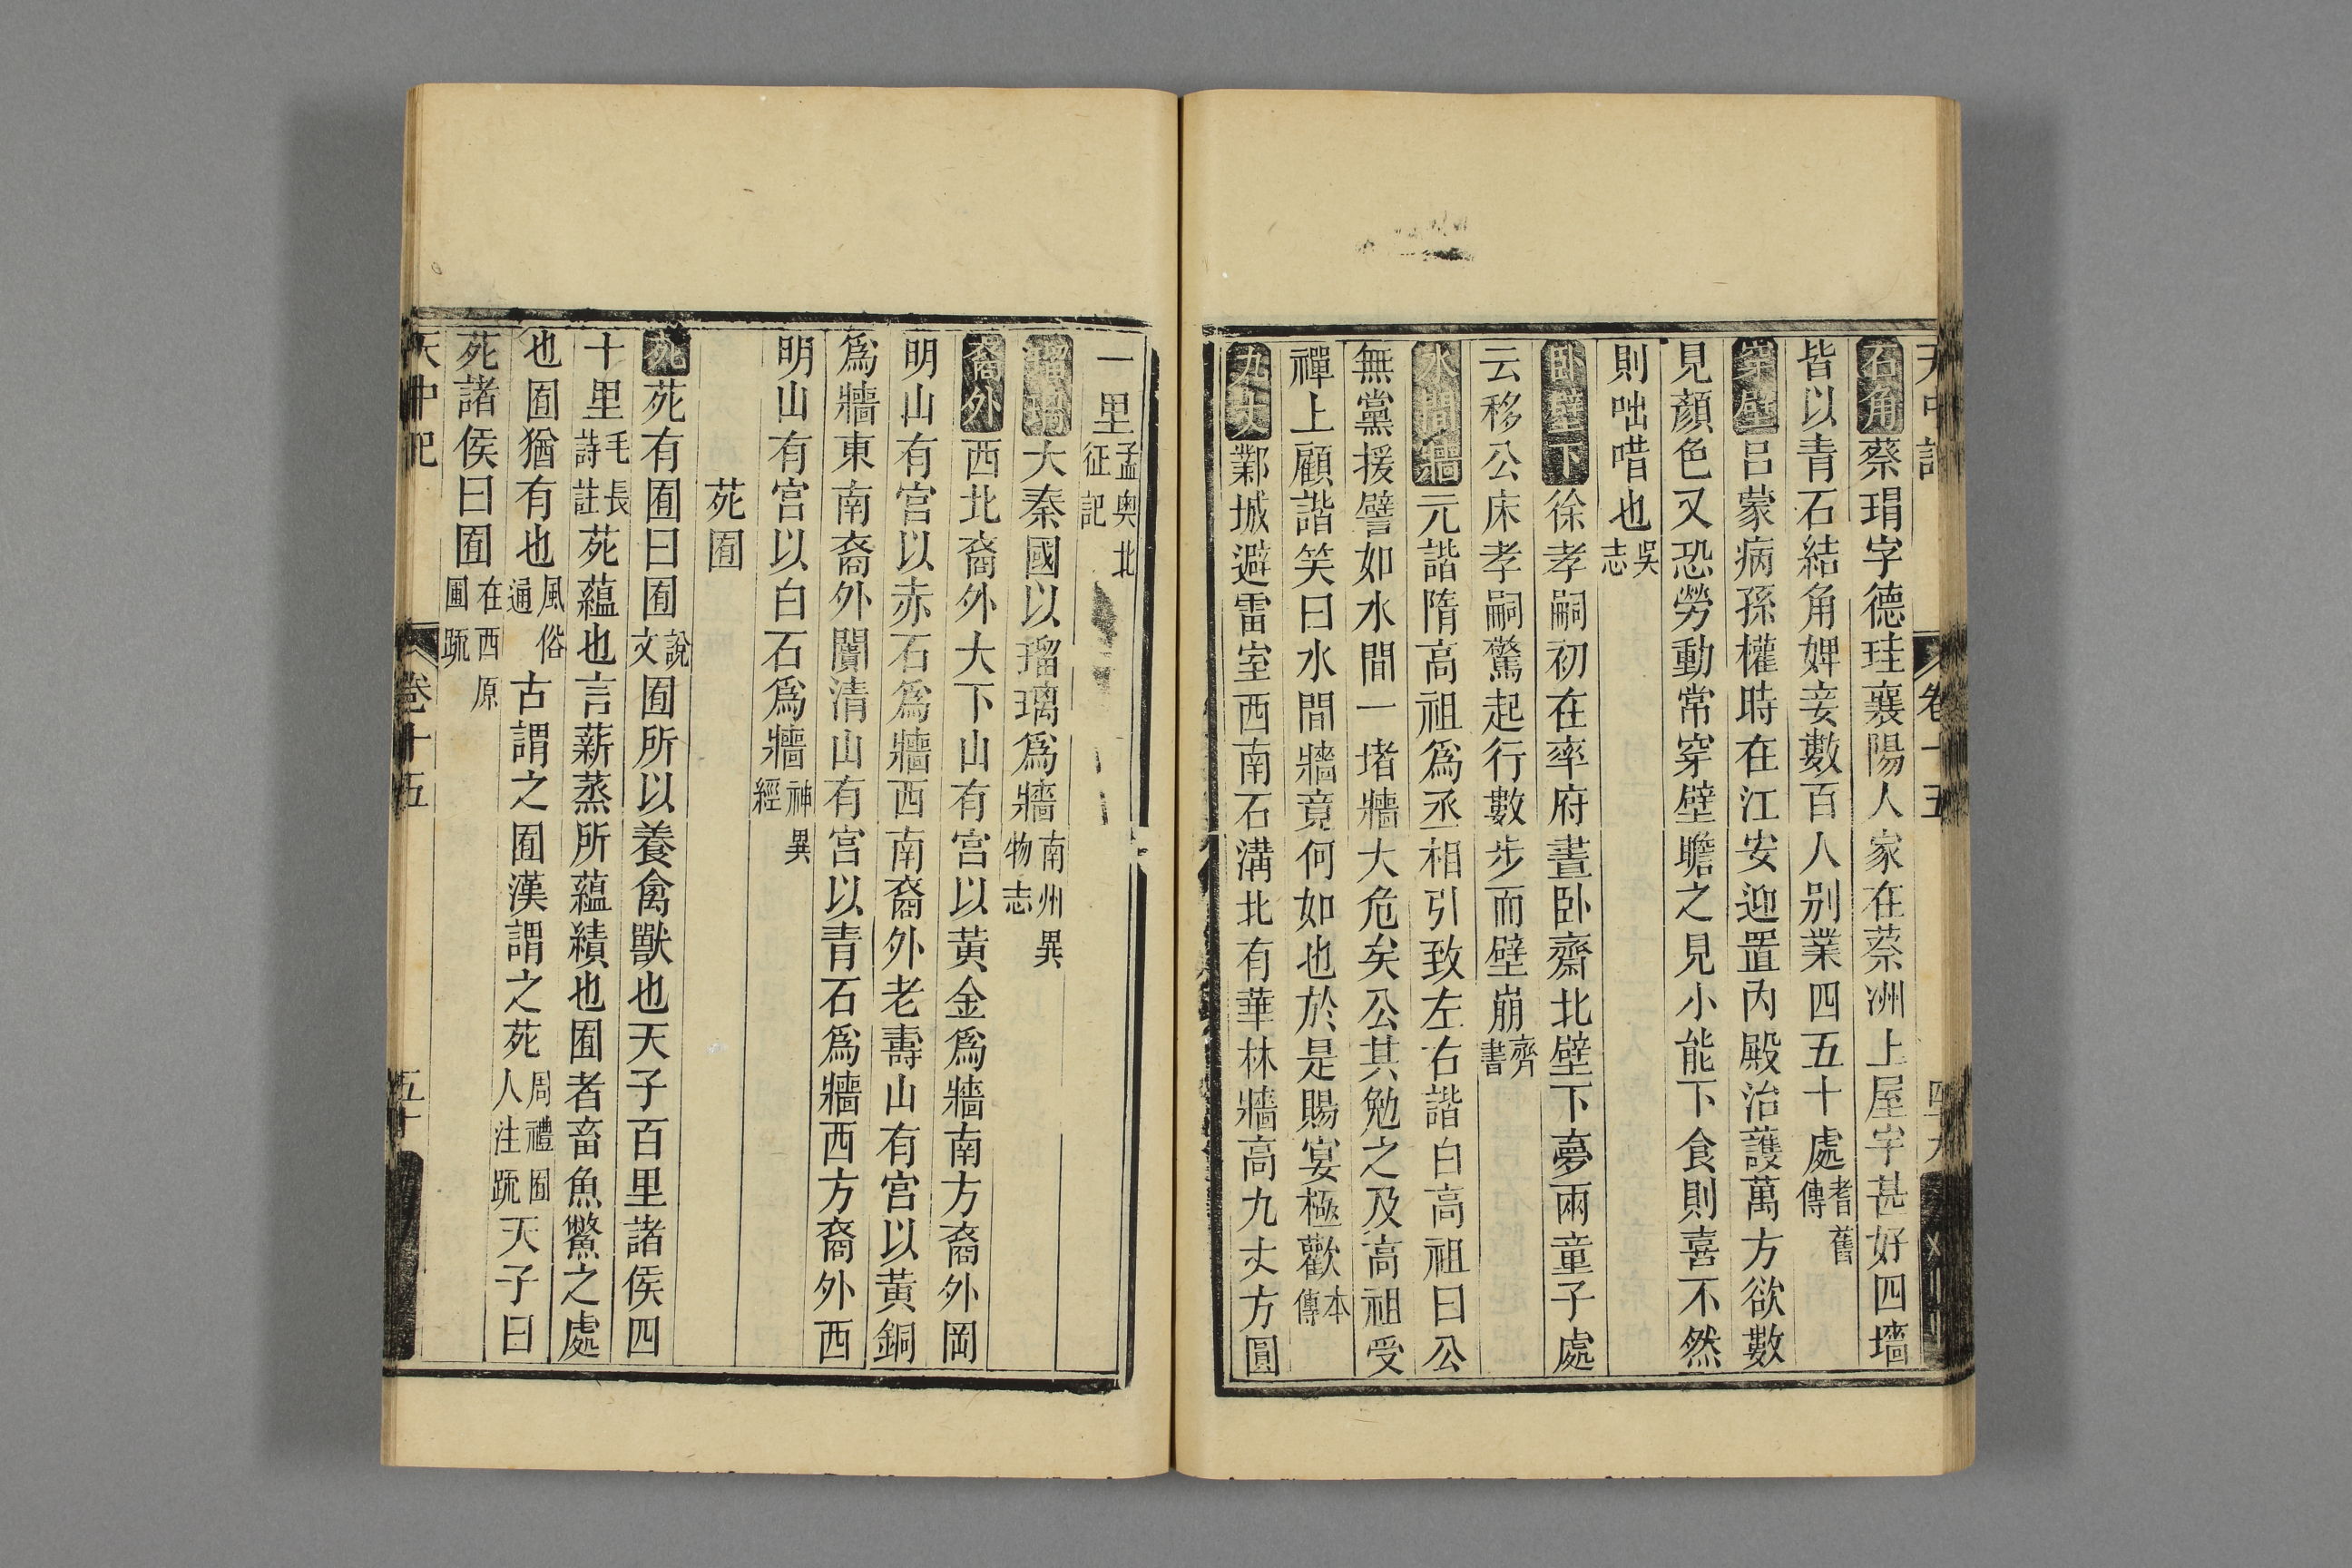 天中記 卷十五 四十九
石角蔡瑁字德珪襄陽人家在蔡洲上屋宇甚好四墻
皆以青石結角婢妾數百人别業四五十處耆舊傳
穿壁吕蒙病孫權時在江安迎置内殿治護萬方欲數
見顔色又恐勞動常穿壁瞻之見小能下食則喜不然
則咄唶也吳志
卧壁下徐孝嗣初在率府晝卧齋北壁下夢兩童子處
云移公床孝嗣驚起行數步而壁崩齊書
水間牆元諧隋高祖爲丞相引致左右諧白高祖曰公
無黨援譬如水間一堵牆大危矣公其勉之及高祖受
禪上顧諧笑曰水間牆竟何如也於是賜宴極歡本傳
九丈鄴城避雷室西南石溝北有華林牆高九丈方圓
一里孟奥北征記
瑠璃大秦國以瑠璃爲牆南州異物志
裔外西北裔外大下山有宫以黄金爲牆南方裔外岡
明山有宫以赤石爲牆西南裔外老壽山有宫以黄銅
爲牆東南裔外闠清山有宫以青石爲牆西方裔外西
明山有宫以白石爲牆神異經
苑囿
苑苑有囿曰囿說文囿所以養禽獸也天子百里諸侯四
十里毛長詩註苑藴也言薪蒸所藴績也囿者畜魚鱉之處
也囿猶有也風俗通古謂之囿漢謂之苑周禮囿人注䟽天子曰
苑諸侯曰囿在西原圃䟽
天中記 卷十五 五十